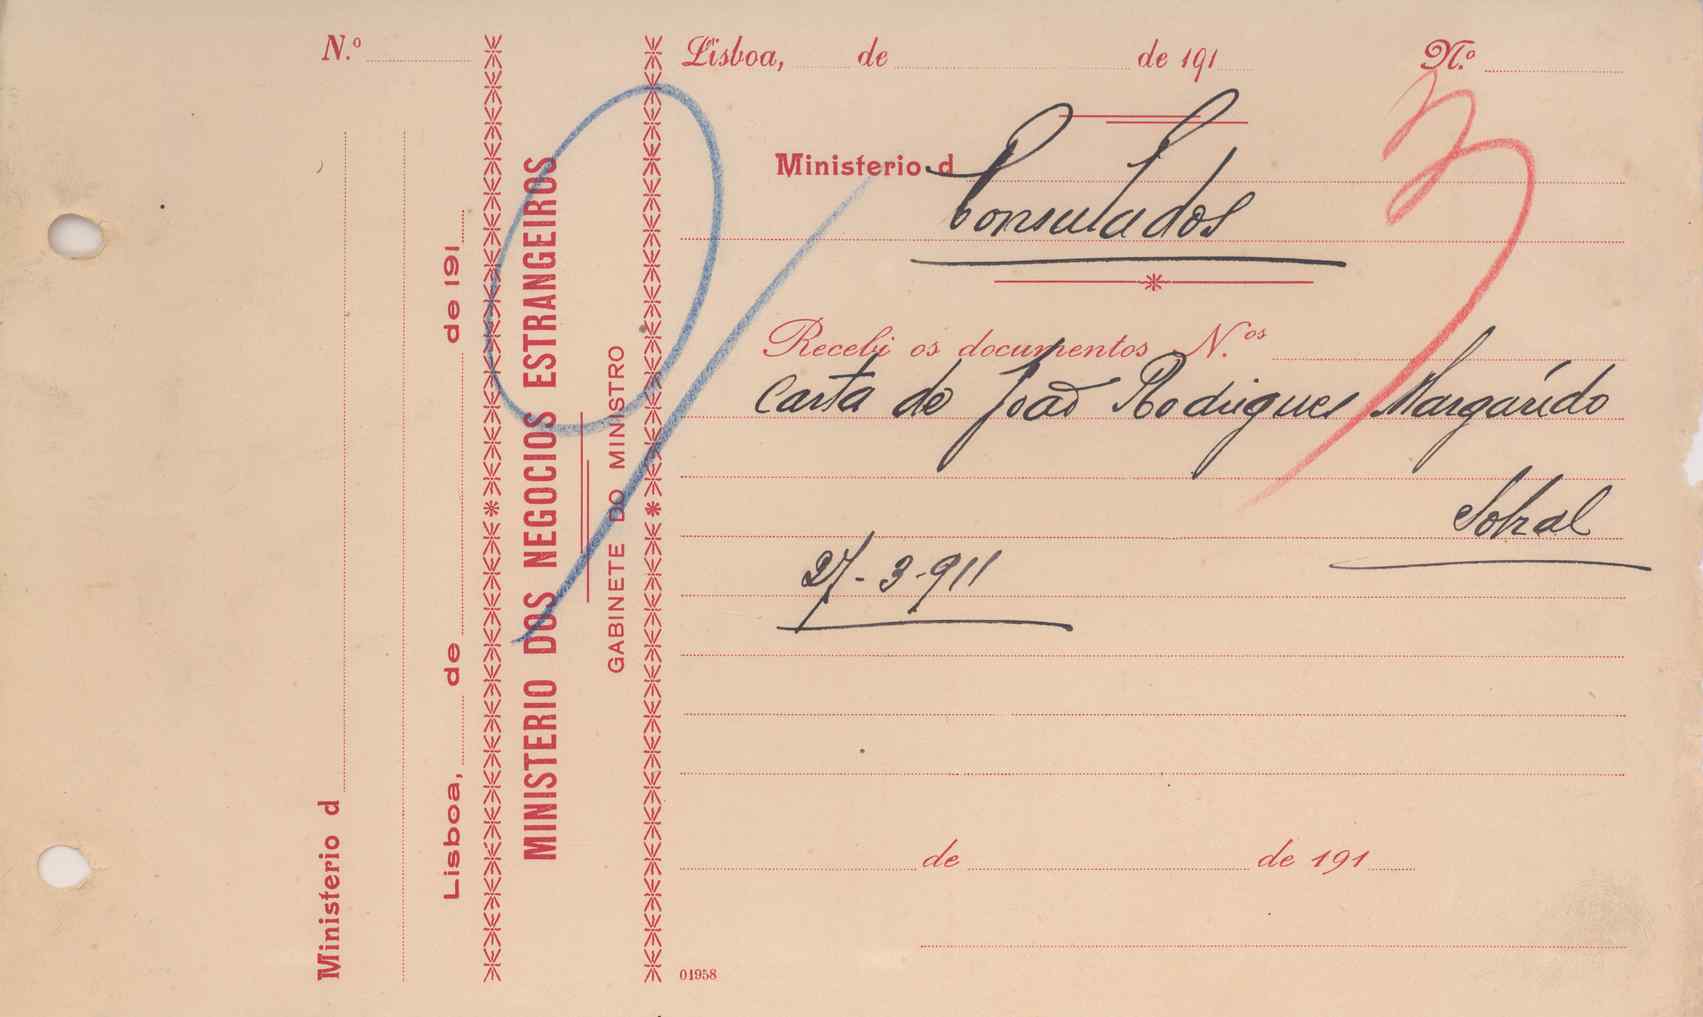 N.º
Ministerio d
Lisboa, de de 191
MINISTERIO DOS NEGOCIOS ESTRANGEIROS
GABINETE DO MINISTRO
Lisboa, de de 191 N.º
Ministerio d
Consulados
Recebi os documentos N.os
Carta de João Rodrigues Margarído
Sobral
27-3-911
de de 191
01958